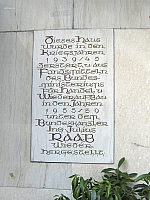 Dieses Haus
wurde in den
Kriegsjahren
1939/45
zerstört u. aus
Fondsmitteln
des Bundes-
ministeriums
für Handel u.
Wiederaufbau
in den Jahren
1955/59
unter dem
Bundeskanzler
Ing. Julius
RAAB
wieder
hergestellt.